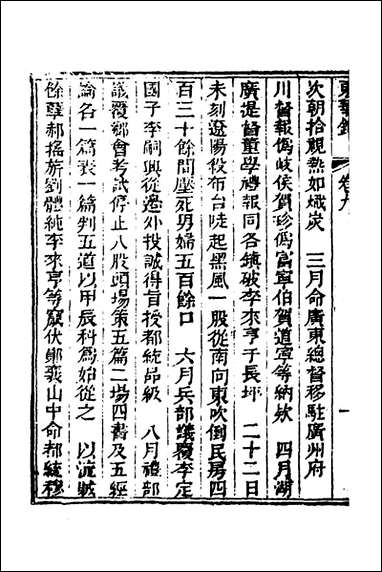 東華錄 卷九 一
次朝拾視熱如熾炭　三月命廣東總督移駐廣州府
川督報偽岐侯賀珍偽富寧伯賀道寧等納欵　四月湖
廣提督董學禮報同各鎮破李來亨于長坪　二十二日
未刻遼陽役布台陡起黑風一股從南向東吹倒民房四
百三十餘間壓死男婦五百餘口　六月兵部議覆李定
國子李嗣興從邊外投誠得旨授都統品級　八月禮部
議覆鄉會考試停止八股頭場策五篇二場四書及五經
論各一篇表一篇判五道以甲辰科為始從之　以流賊
餘孽郝搖旂劉體純李來亨等竄伏鄖襄山中命都統穆